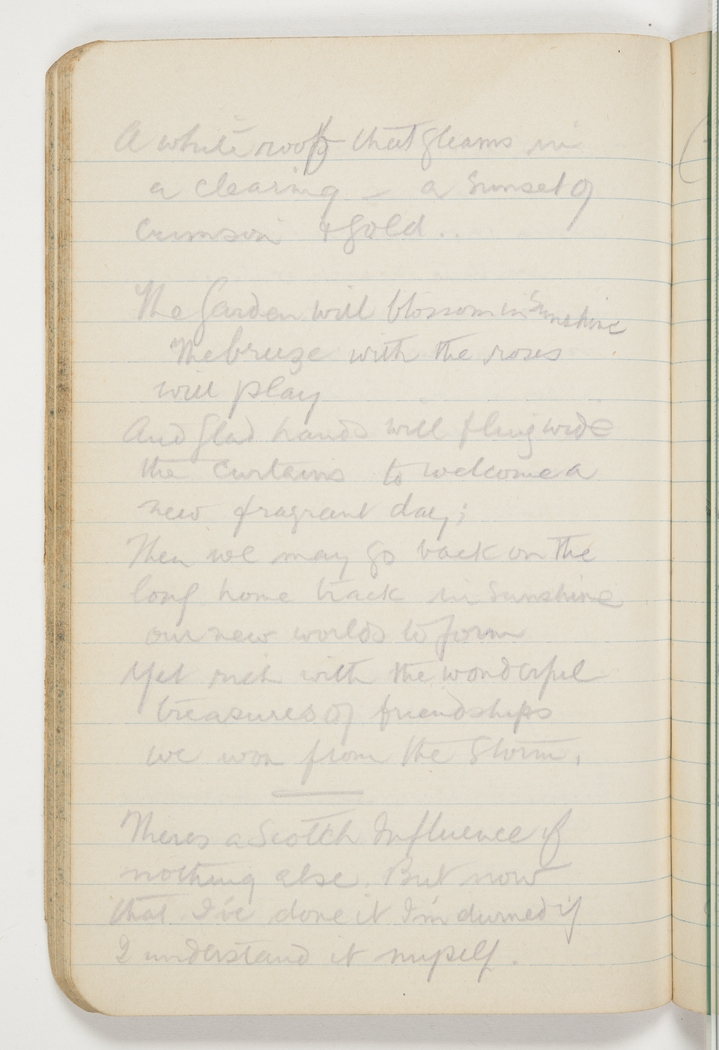 A white roof that gleams in
a clearing - a sunset of
Crimson & Gold..
The Garden will blossom in Sunshine
The breeze with the roses
will play
And Glad hands will fling wide
the Curtains to welcome a
new fragrant day;
Then we may go back on the
long home track in Sunshine
our new worlds to form
Yet rich with the wonderful
treasures of friendships
we won from the Storm.
Theres a Scotch Influence if
nothing else. But now
that I've done it I'm durned if
I understand it myself.